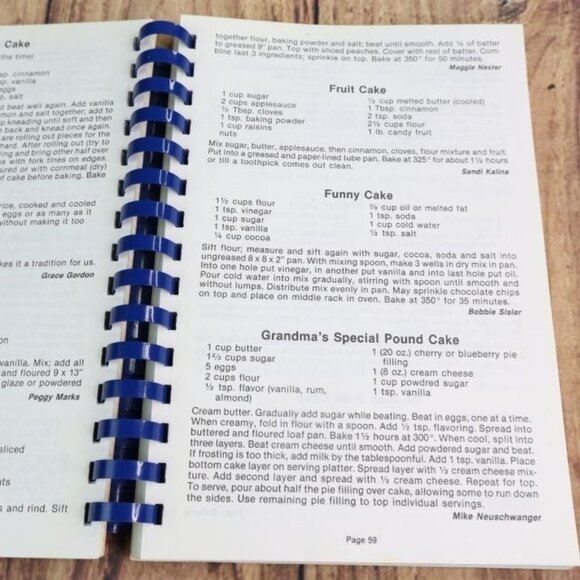 Cake
the time)
sp. cinnamon
p. vanilla
eggs
p. salt
d beat well again. Add vanilla
mon and salt together; add to
p kneading until soft and then
e back and knead once again.
are rolling out pieces for the
hard. After rolling out (try to
lling and bring other half over
s with fork tines on edges.
ured or with cornmeal (dry)
f cake before baking. Bake
rice, cooked and cooled
eggs or as many as it
without making it too
kes it a tradition for us.
Grace Gordon
on
vanilla. Mix; add all
and floured 9 x 13"
glaze or powdered
Peggy Marks
sliced
uts
s and rind. Sift
together flour, baking powder and salt; beat until smooth. Add ½ of batter
to greased 9" pan. Top with sliced peaches. Cover with rest of batter. Com-
bine last 3 ingredients; sprinkle on top. Bake at 350° for 50 minutes.
Maggie Nester
Fruit Cake
1 cup sugar
2 cups applesauce
½ Tbsp. cloves
1 tsp. baking powder
1 cup raisins
nuts
½ cup melted butter (cooled)
1 Tbsp. cinnamon
2 tsp. soda
2½ cups flour
1 lb. candy fruit
Mix sugar, butter, applesauce, then cinnamon, cloves, flour mixture and fruit.
Put into a greased and paper-lined tube pan. Bake at 325° for about 1½ hours
or till a toothpick comes out clean.
Sandi Kalina
Funny Cake
1½ cups flour
1 tsp. vinegar
1 cup sugar
1 tsp. vanilla
¼ cup cocoa
⅓ cup oil or melted fat
1 tsp. soda
1 cup cold water
½ tsp. salt
Sift flour; measure and sift again with sugar, cocoa, soda and salt into
ungreased 8 x 8 x 2" pan. With mixing spoon, make 3 wells in dry mix in pan.
Into one hole put vinegar, in another put vanilla and into last hole put oil.
Pour cold water into mix gradually, stirring with spoon until smooth and
without lumps. Distribute mix evenly in pan. May sprinkle chocolate chips
on top and place on middle rack in oven. Bake at 350° for 35 minutes.
Bobbie Sisler
Grandma's Special Pound Cake
1 cup butter
1⅔ cups sugar
5 eggs
2 cups flour
½ tsp. flavor (vanilla, rum,
almond)
1 (20 oz.) cherry or blueberry pie
filling
1 (8 oz.) cream cheese
1 cup powdred sugar
1 tsp. vanilla
Cream butter. Gradually add sugar while beating. Beat in eggs, one at a time.
When creamy, fold in flour with a spoon. Add ½ tsp. flavoring. Spread into
buttered and floured loaf pan. Bake 1½ hours at 300°. When cool, split into
three layers. Beat cream cheese until smooth. Add powdered sugar and beat.
If frosting is too thick, add milk by the tablespoonful. Add 1 tsp. vanilla. Place
bottom cake layer on serving platter. Spread layer with ⅓ cream cheese mix-
ture. Add second layer and spread with ⅓ cream cheese. Repeat for top.
To serve, pour about half the pie filling over cake, allowing some to run down
the sides. Use remaining pie filling to top individual servings.
Mike Neuschwanger
Page 59